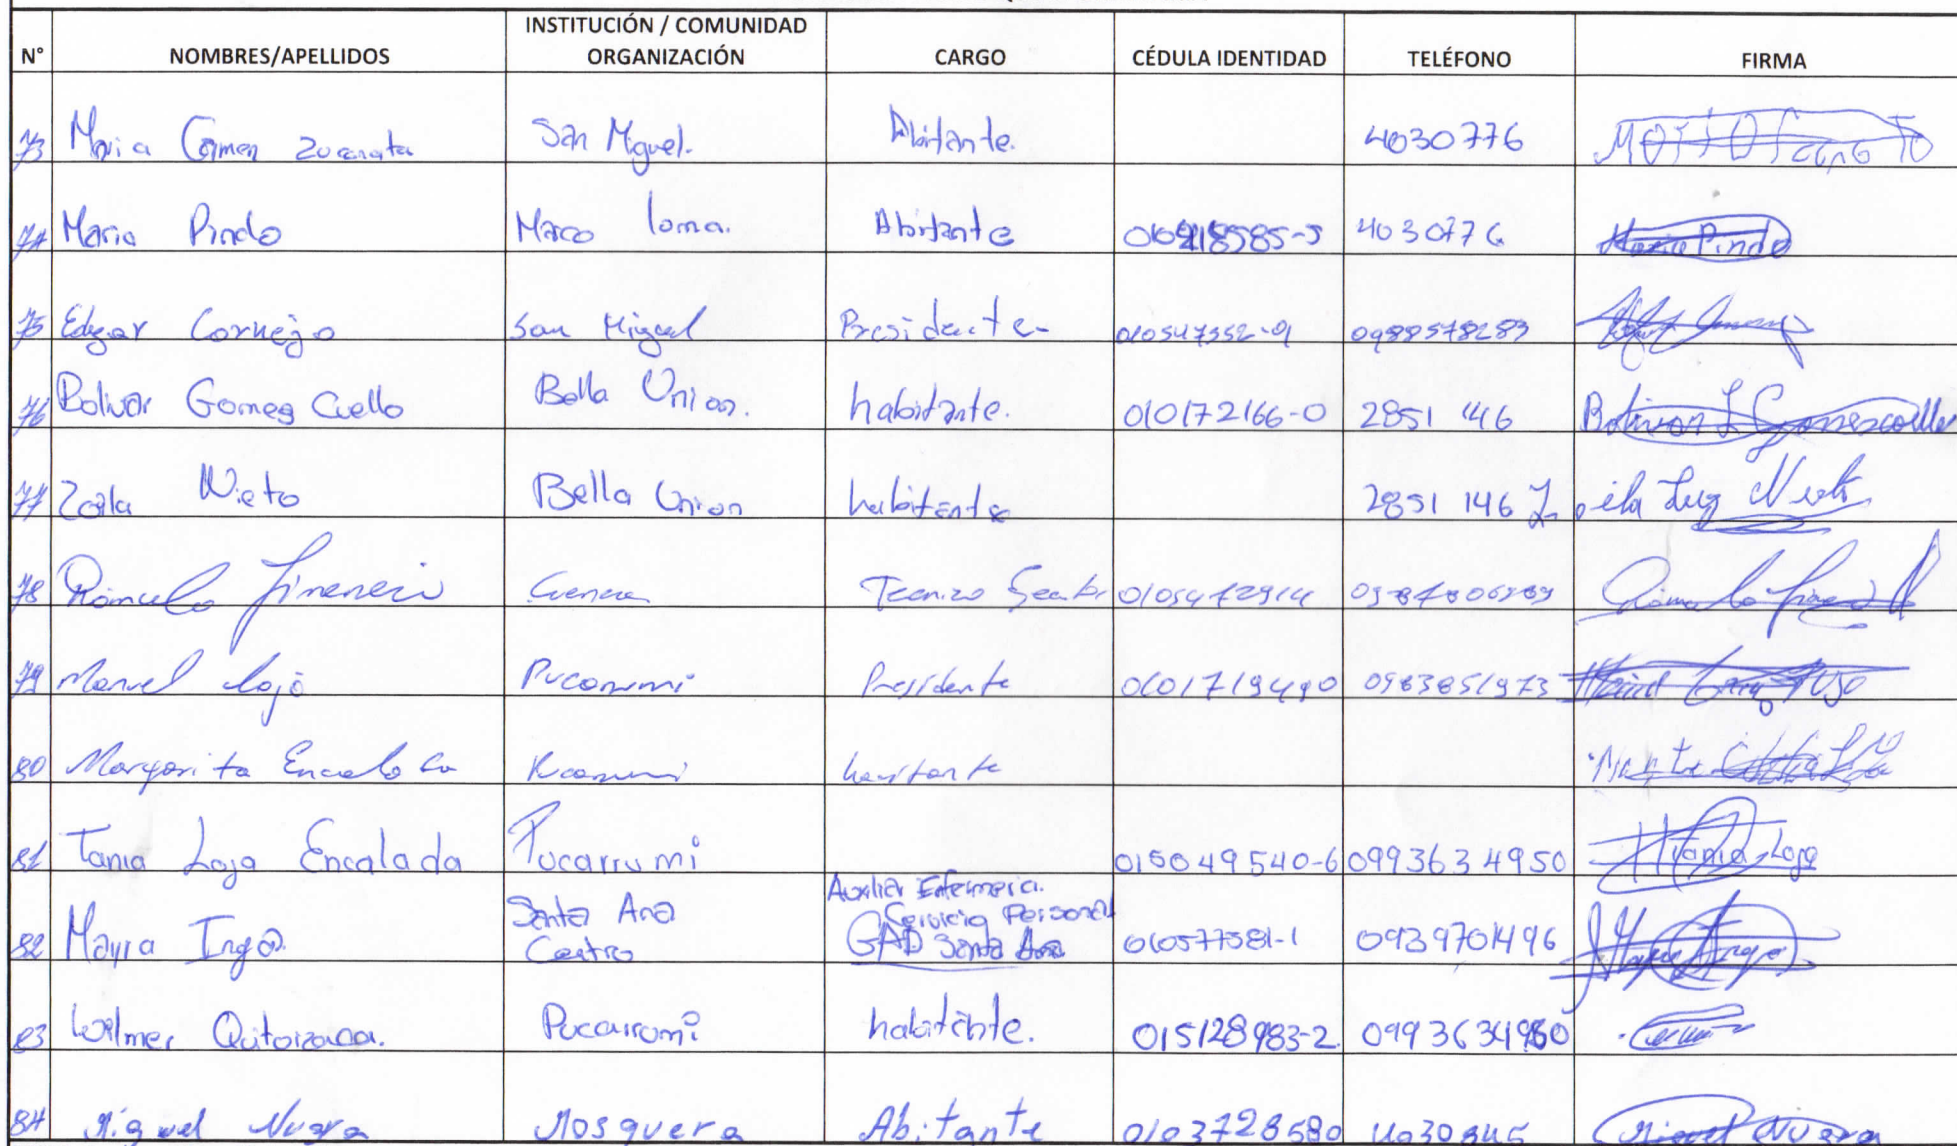 INSTITUCIÓN / COMUNIDAD
N° NOMBRES/APELLIDOS ORGANIZACIÓN CARGO CÉDULA IDENTIDAD TELÉFONO FIRMA
73 Maria Carmen San Miguel. Abitante. 4030776
74 Maria Pindo Maco loma. Abitante 4030776 Maria Pindo
75 Edgar Cornejo San Miguel Presidente 010547352-9 0988578283
76 Bolivar Gomez Cuello Bella Union. habitante. 010172166-0 2851 146 Bolivar L Gomezcuello
77 Zoila Nieto Bella Union habitante 2851 146 Zoila Luz Nieto
78 Rómulo Jimenez Cuenca Tecnico
79 Manuel Loja Pucarumi Presidente 0101719490 0983851973
80 Margarita Encalada habitante
81 Tania Loja Encalada Pucarrumi 015049540-6 0993634950 Tania Loja
Auxiliar Enfermeria.
Santa Ana Servicio Personal
82 Mayra Inga Centro GAD Santa Ana 010577381-1 0939701496 Mayra Inga
83 Wilmer Quitoizaca. Pucarrumi habitante. 015128983-2 0993634950
84 Miguel Nugra Mosquera Abitante 0103728580 4030845 Miguel Nugra